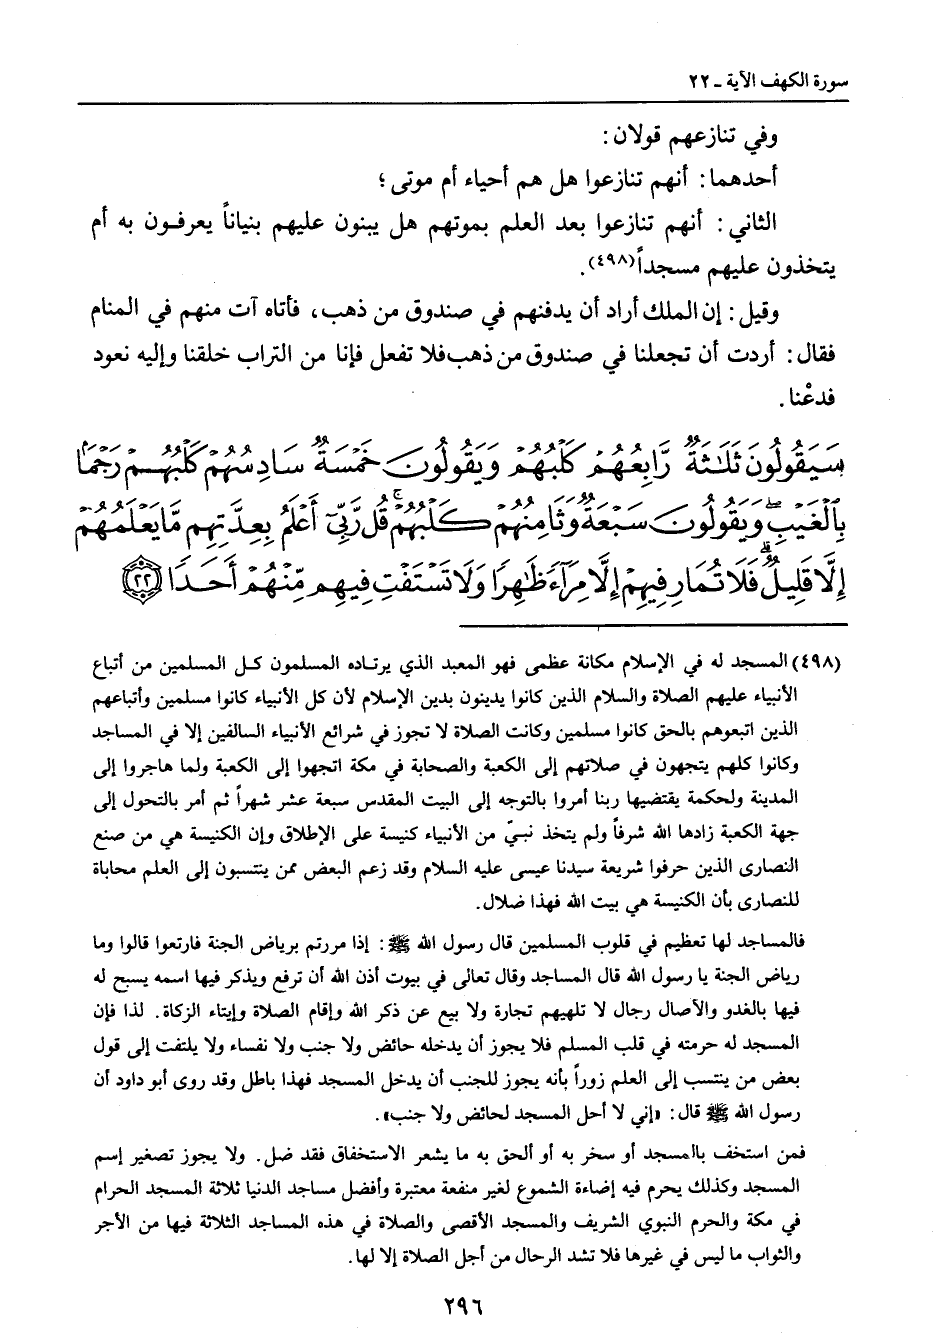 سورة الكهف الآية ـ ٢٢
وفي تنازعهم قولان:
أحدهما: أنهم تنازعوا هل هم أحياء أم موتى؛
الثاني: أنهم تنازعوا بعد العلم بموتهم هل يبنون عليهم بنياناً يعرفون به أم
يتخذون عليهم مسجداً(٤٩٨).
وقيل: إن الملك أراد أن يدفنهم في صندوق من ذهب، فأتاه آت منهم في المنام
فقال: أردت أن تجعلنا في صندوق من ذهب فلا تفعل فإنا من التراب خلقنا وإليه نعود
فدعْنا.
سَيَقُولُونَ ثَلَٰثَةٌ رَّابِعُهُمْ كَلْبُهُمْ وَيَقُولُونَ خَمْسَةٌ سَادِسُهُمْ كَلْبُهُمْ رَجْمًۢا
بِٱلْغَيْبِ ۖ وَيَقُولُونَ سَبْعَةٌ وَثَامِنُهُمْ كَلْبُهُمْ ۚ قُل رَّبِّىٓ أَعْلَمُ بِعِدَّتِهِم مَّا يَعْلَمُهُمْ
إِلَّا قَلِيلٌ ۗ فَلَا تُمَارِ فِيهِمْ إِلَّا مِرَآءً ظَٰهِرًا وَلَا تَسْتَفْتِ فِيهِم مِّنْهُمْ أَحَدًا ٢٢
(٤٩٨) المسجد له في الإسلام مكانة عظمى فهو المعبد الذي يرتاده المسلمون كل المسلمين من أتباع
الأنبياء عليهم الصلاة والسلام الذين كانوا يدينون بدين الإسلام لأن كل الأنبياء كانوا مسلمين وأتباعهم
الذين اتبعوهم بالحق كانوا مسلمين وكانت الصلاة لا تجوز في شرائع الأنبياء السالفين إلا في المساجد
وكانوا كلهم يتجهون في صلاتهم إلى الكعبة والصحابة في مكة اتجهوا إلى الكعبة ولما هاجروا إلى
المدينة ولحكمة يقتضيها ربنا أمروا بالتوجه إلى البيت المقدس سبعة عشر شهراً ثم أمر بالتحول إلى
جهة الكعبة زادها الله شرفاً ولم يتخذ نبيّ من الأنبياء كنيسة على الإطلاق وإن الكنيسة هي من صنع
النصارى الذين حرفوا شريعة سيدنا عيسى عليه السلام وقد زعم البعض ممن ينتسبون إلى العلم محاباة
للنصارى بأن الكنيسة هي بيت الله فهذا ضلال.
فالمساجد لها تعظيم في قلوب المسلمين قال رسول الله ﷺ: إذا مررتم برياض الجنة فارتعوا قالوا وما
رياض الجنة يا رسول الله قال المساجد وقال تعالى في بيوت أذن الله أن ترفع ويذكر فيها اسمه يسبح له
فيها بالغدو والآصال رجال لا تلهيهم تجارة ولا بيع عن ذكر الله وإقام الصلاة وإيتاء الزكاة. لذا فإن
المسجد له حرمته في قلب المسلم فلا يجوز أن يدخله حائض ولا جنب ولا نفساء ولا يلتفت إلى قول
بعض من ينتسب إلى العلم زوراً بأنه يجوز للجنب أن يدخل المسجد فهذا باطل وقد روى أبو داود أن
رسول الله ﷺ قال: «إني لا أحل المسجد لحائض ولا جنب».
فمن استخف باالمسجد أو سخر به أو ألحق به ما يشعر الاستخفاق فقد ضل. ولا يجوز تصغير إسم
المسجد وكذلك يحرم فيه إضاءة الشموع لغير منفعة معتبرة وأفضل مساجد الدنيا ثلاثة المسجد الحرام
في مكة والحرم النبوي الشريف والمسجد الأقصى والصلاة في هذه المساجد الثلاثة فيها من الأجر
والثواب ما ليس في غيرها فلا تشد الرحال من أجل الصلاة إلا لها.
٢٩٦